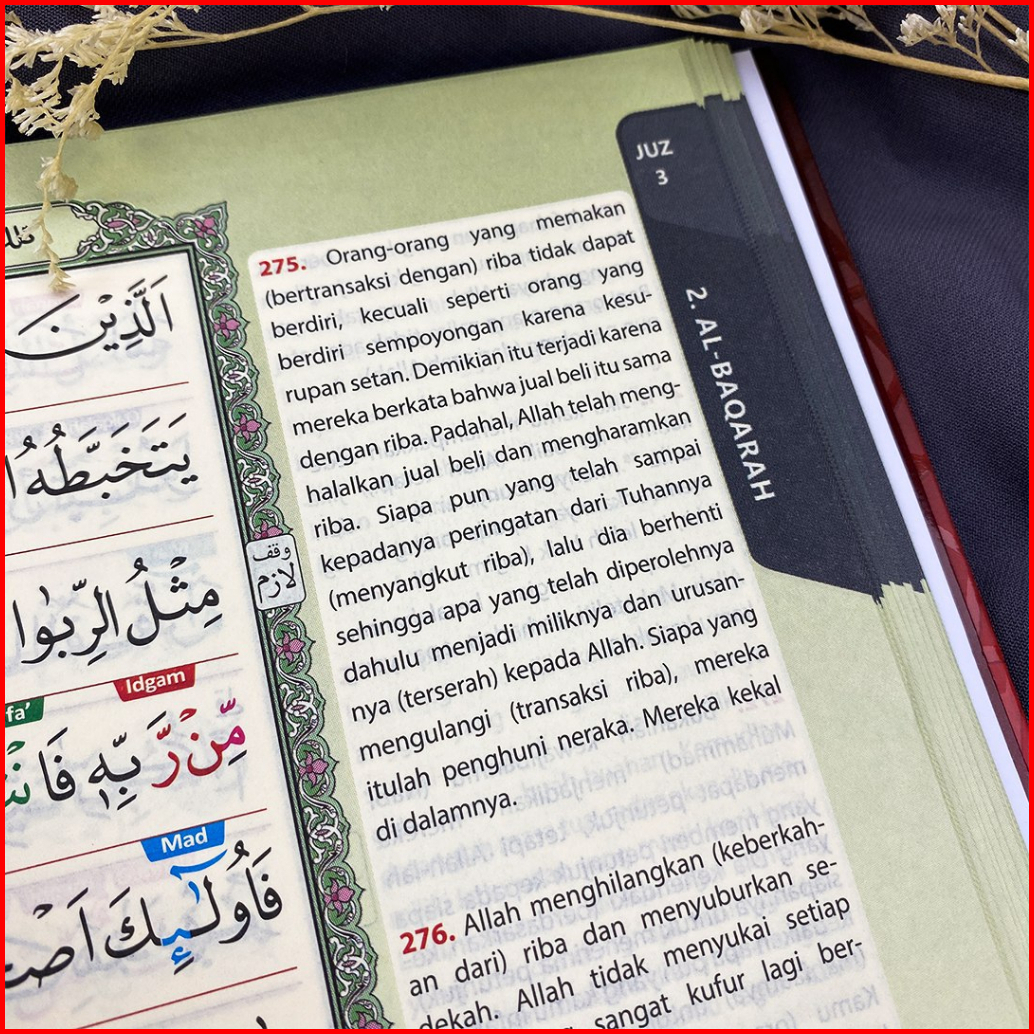 JUZ
3
2. AL-BAQARAH
275. Orang-orang yang memakan
(bertransaksi dengan) riba tidak dapat
berdiri, kecuali seperti orang yang
berdiri sempoyongan karena kesu-
rupan setan. Demikian itu terjadi karena
mereka berkata bahwa jual beli itu sama
dengan riba. Padahal, Allah telah meng-
halalkan jual beli dan mengharamkan
riba. Siapa pun yang telah sampai
kepadanya peringatan dari Tuhannya
(menyangkut riba), lalu dia berhenti
sehingga apa yang telah diperolehnya
dahulu menjadi miliknya dan urusan-
nya (terserah) kepada Allah. Siapa yang
mengulangi (transaksi riba), mereka
itulah penghuni neraka. Mereka kekal
di dalamnya.
276. Allah menghilangkan (keberkah-
an dari) riba dan menyuburkan se-
dekah. Allah tidak menyukai setiap
sangat kufur lagi ber-
اَلَّذِيْنَ
يَتَخَبَّطُهُ
وقف
لازم
مِثْلُ الرِّبٰوا
Idgam
fa’
مِّنْ رَّبِّهٖ فَا
Mad
فَاُولٰۤىِٕكَ اَصْ